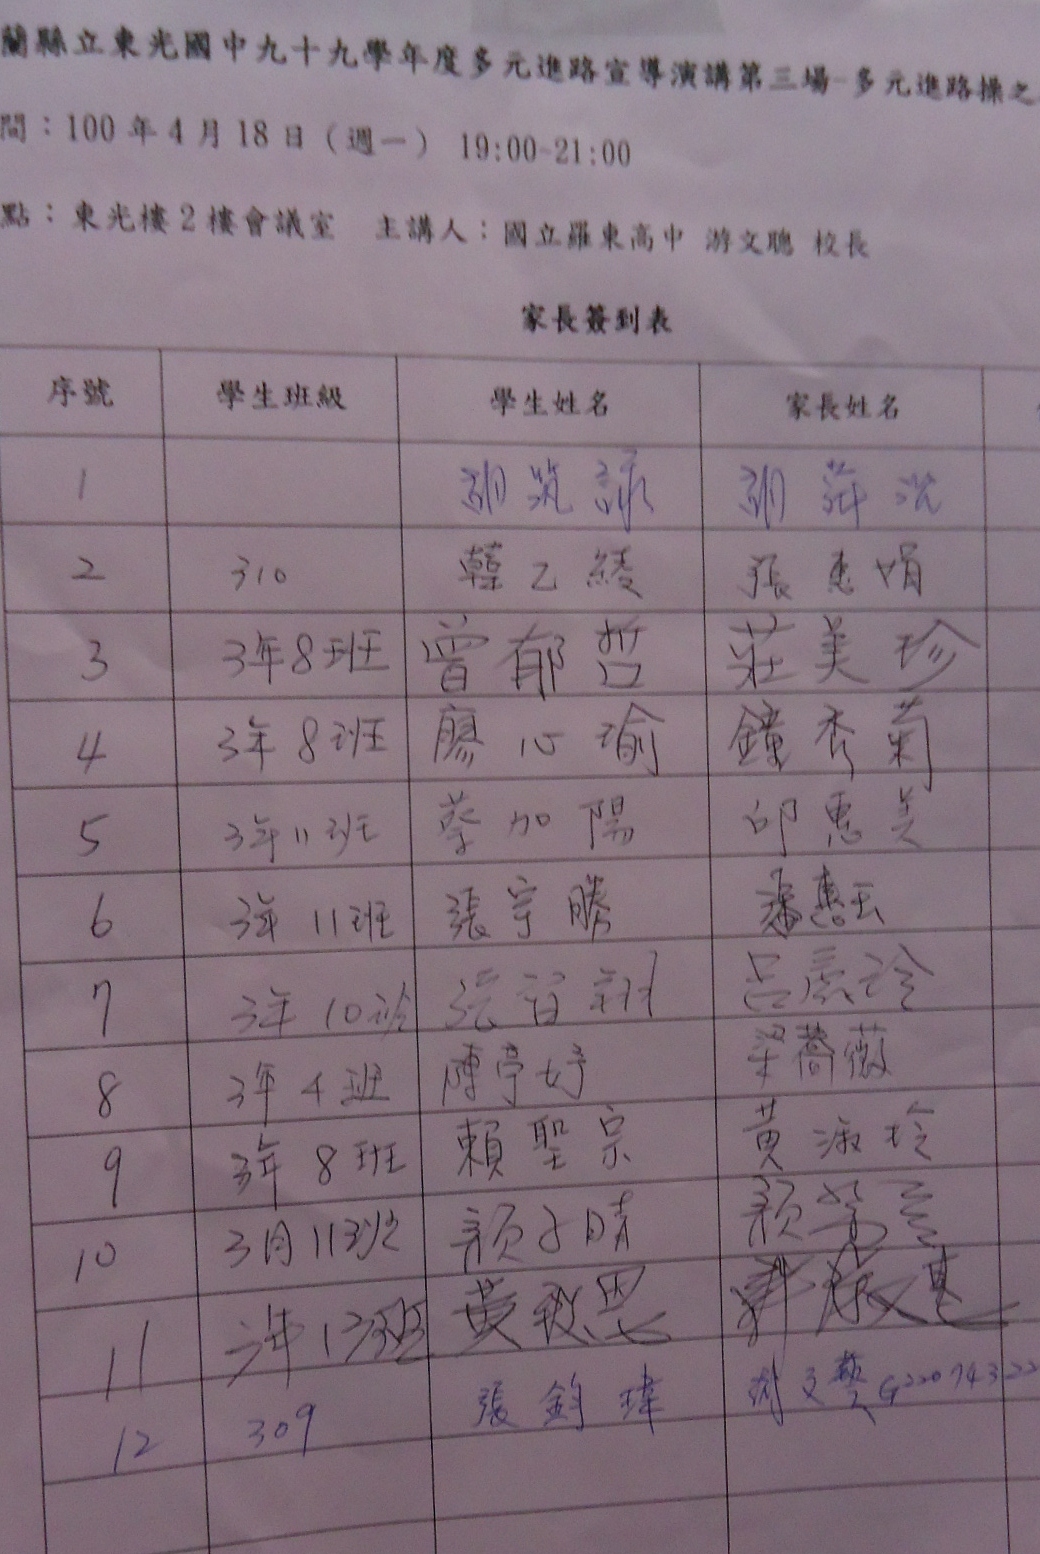 蘭縣立東光國中九十九學年度多元進路宣導演講第三場-多元進路操之
間：100 年 4 月 18 日（週一） 19:00-21:00
點：東光樓 2 樓會議室 主講人：國立羅東高中 游文聰 校長
家長簽到表
序號 學生班級 學生姓名 家長姓名
1
2 310 韓乙綾 張惠娟
3 3年8班 曾郁哲 莊美珍
4 3年8班 廖心瑜 鐘秀菊
5 3年11班 蔡加陽 邱惠美
6 3年11班 張宇勝
7 3年10班 張智翔
8 3年4班 陳亭妤 梁薔薇
9 3年8班 賴聖宗 黃淑玲
10 3月11班 顏子晴 顏
11 年13班 黃
12 309 張鈞瑋